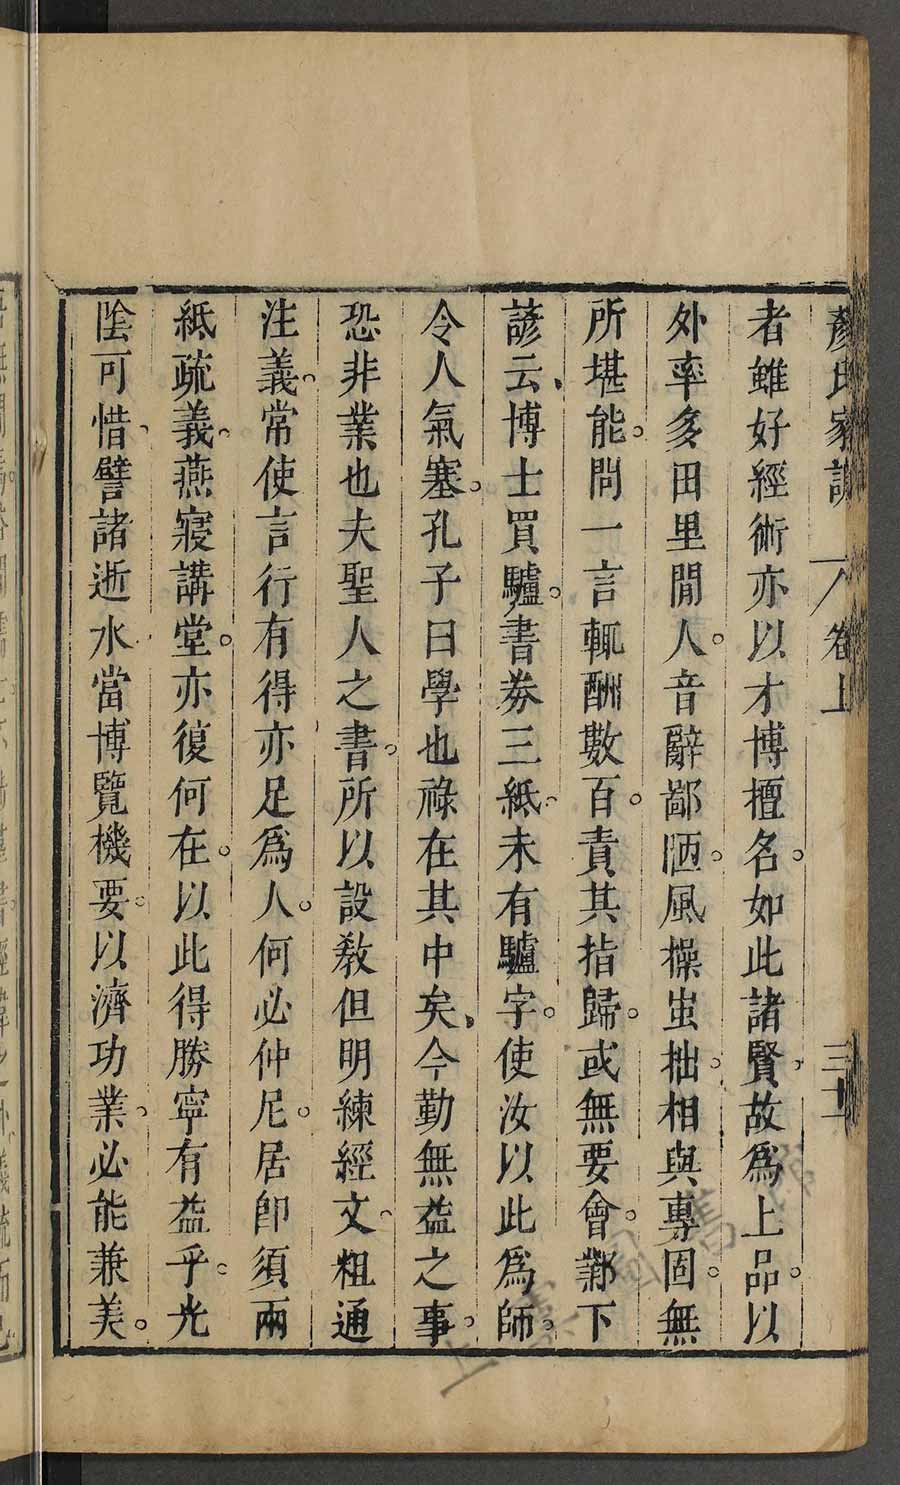 顏氏家訓 卷上 三十
者雖好經術亦以才博擅名。如此諸賢、故爲上品。以
外率多田里閒人。音辭鄙陋。風操蚩拙。相與專固。無
所堪能。問一言輒酬數百。責其指歸。或無要會。鄴下
諺云、博士買驢。書券三紙、未有驢字。使汝以此爲師。
令人氣塞。孔子曰學也祿在其中矣、今勤無益之事。
恐非業也夫聖人之書。所以設敎但明練經文、粗通
注義、常使言行有得亦足爲人。何必仲尼。居卽須兩
紙疏義、燕寢講堂。亦復何在。以此得勝寧有益乎。光
陰可惜、譬諸逝水當博覽機要。以濟功業、必能兼美。